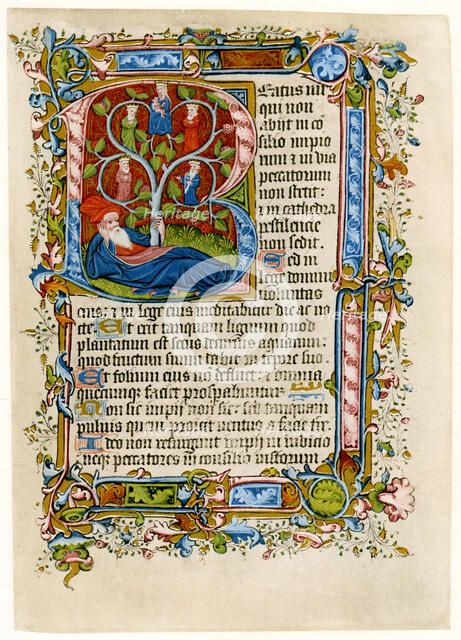 Beatus vir
qui non
abijt in co
silio impio
rum & in via
peccatorum
non stetit:
& in cathedra
pestilencie
non sedit.
Sed in
lege domini
voluntas
eius: & in lege eius meditabitur die ac no
cte. Et erit tanquam lignum quod
plantatum est secus decursus aquarum:
quod fructum suum dabit in tempore suo
Et folium eius non defluet: & omnia
quecumque faciet prosperabuntur
Non sic impij non sic: sed tanquam
puluis quem proicit ventus a facie ter
Ideo non resurgunt impij in iudicio
neque peccatores in consilio iustorum
Heritage